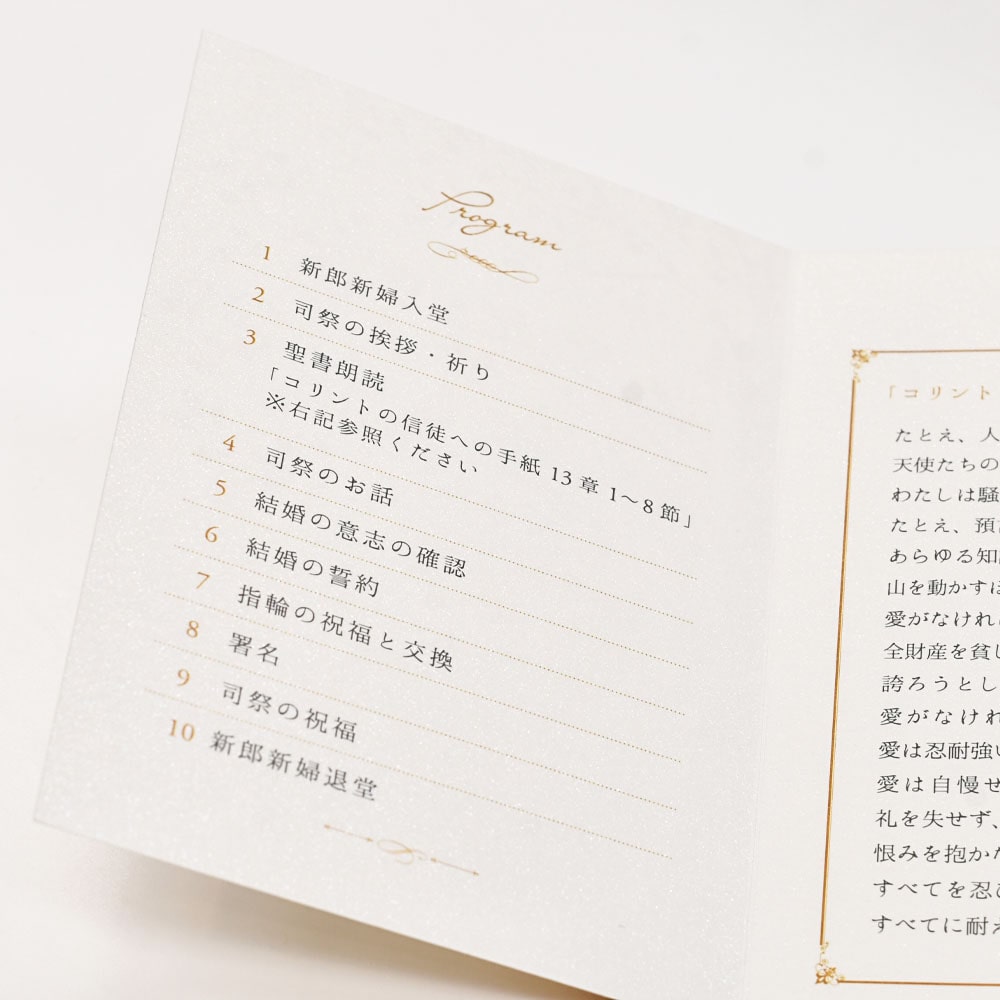 Program
1 新郎新婦入堂
2 司祭の挨拶・祈り
3 聖書朗読
「コリントの信徒への手紙 13 章 1〜8 節」
※右記参照ください
4 司祭のお話
5 結婚の意志の確認
6 結婚の誓約
7 指輪の祝福と交換
8 署名
9 司祭の祝福
10 新郎新婦退堂
「コリント
たとえ、人
天使たちの
わたしは騒
たとえ、預
あらゆる知
山を動かすほ
愛がなければ
全財産を貧し
誇ろうとし
愛がなけれ
愛は忍耐強い
愛は自慢せ
礼を失せず、
恨みを抱かな
すべてを忍び
すべてに耐え